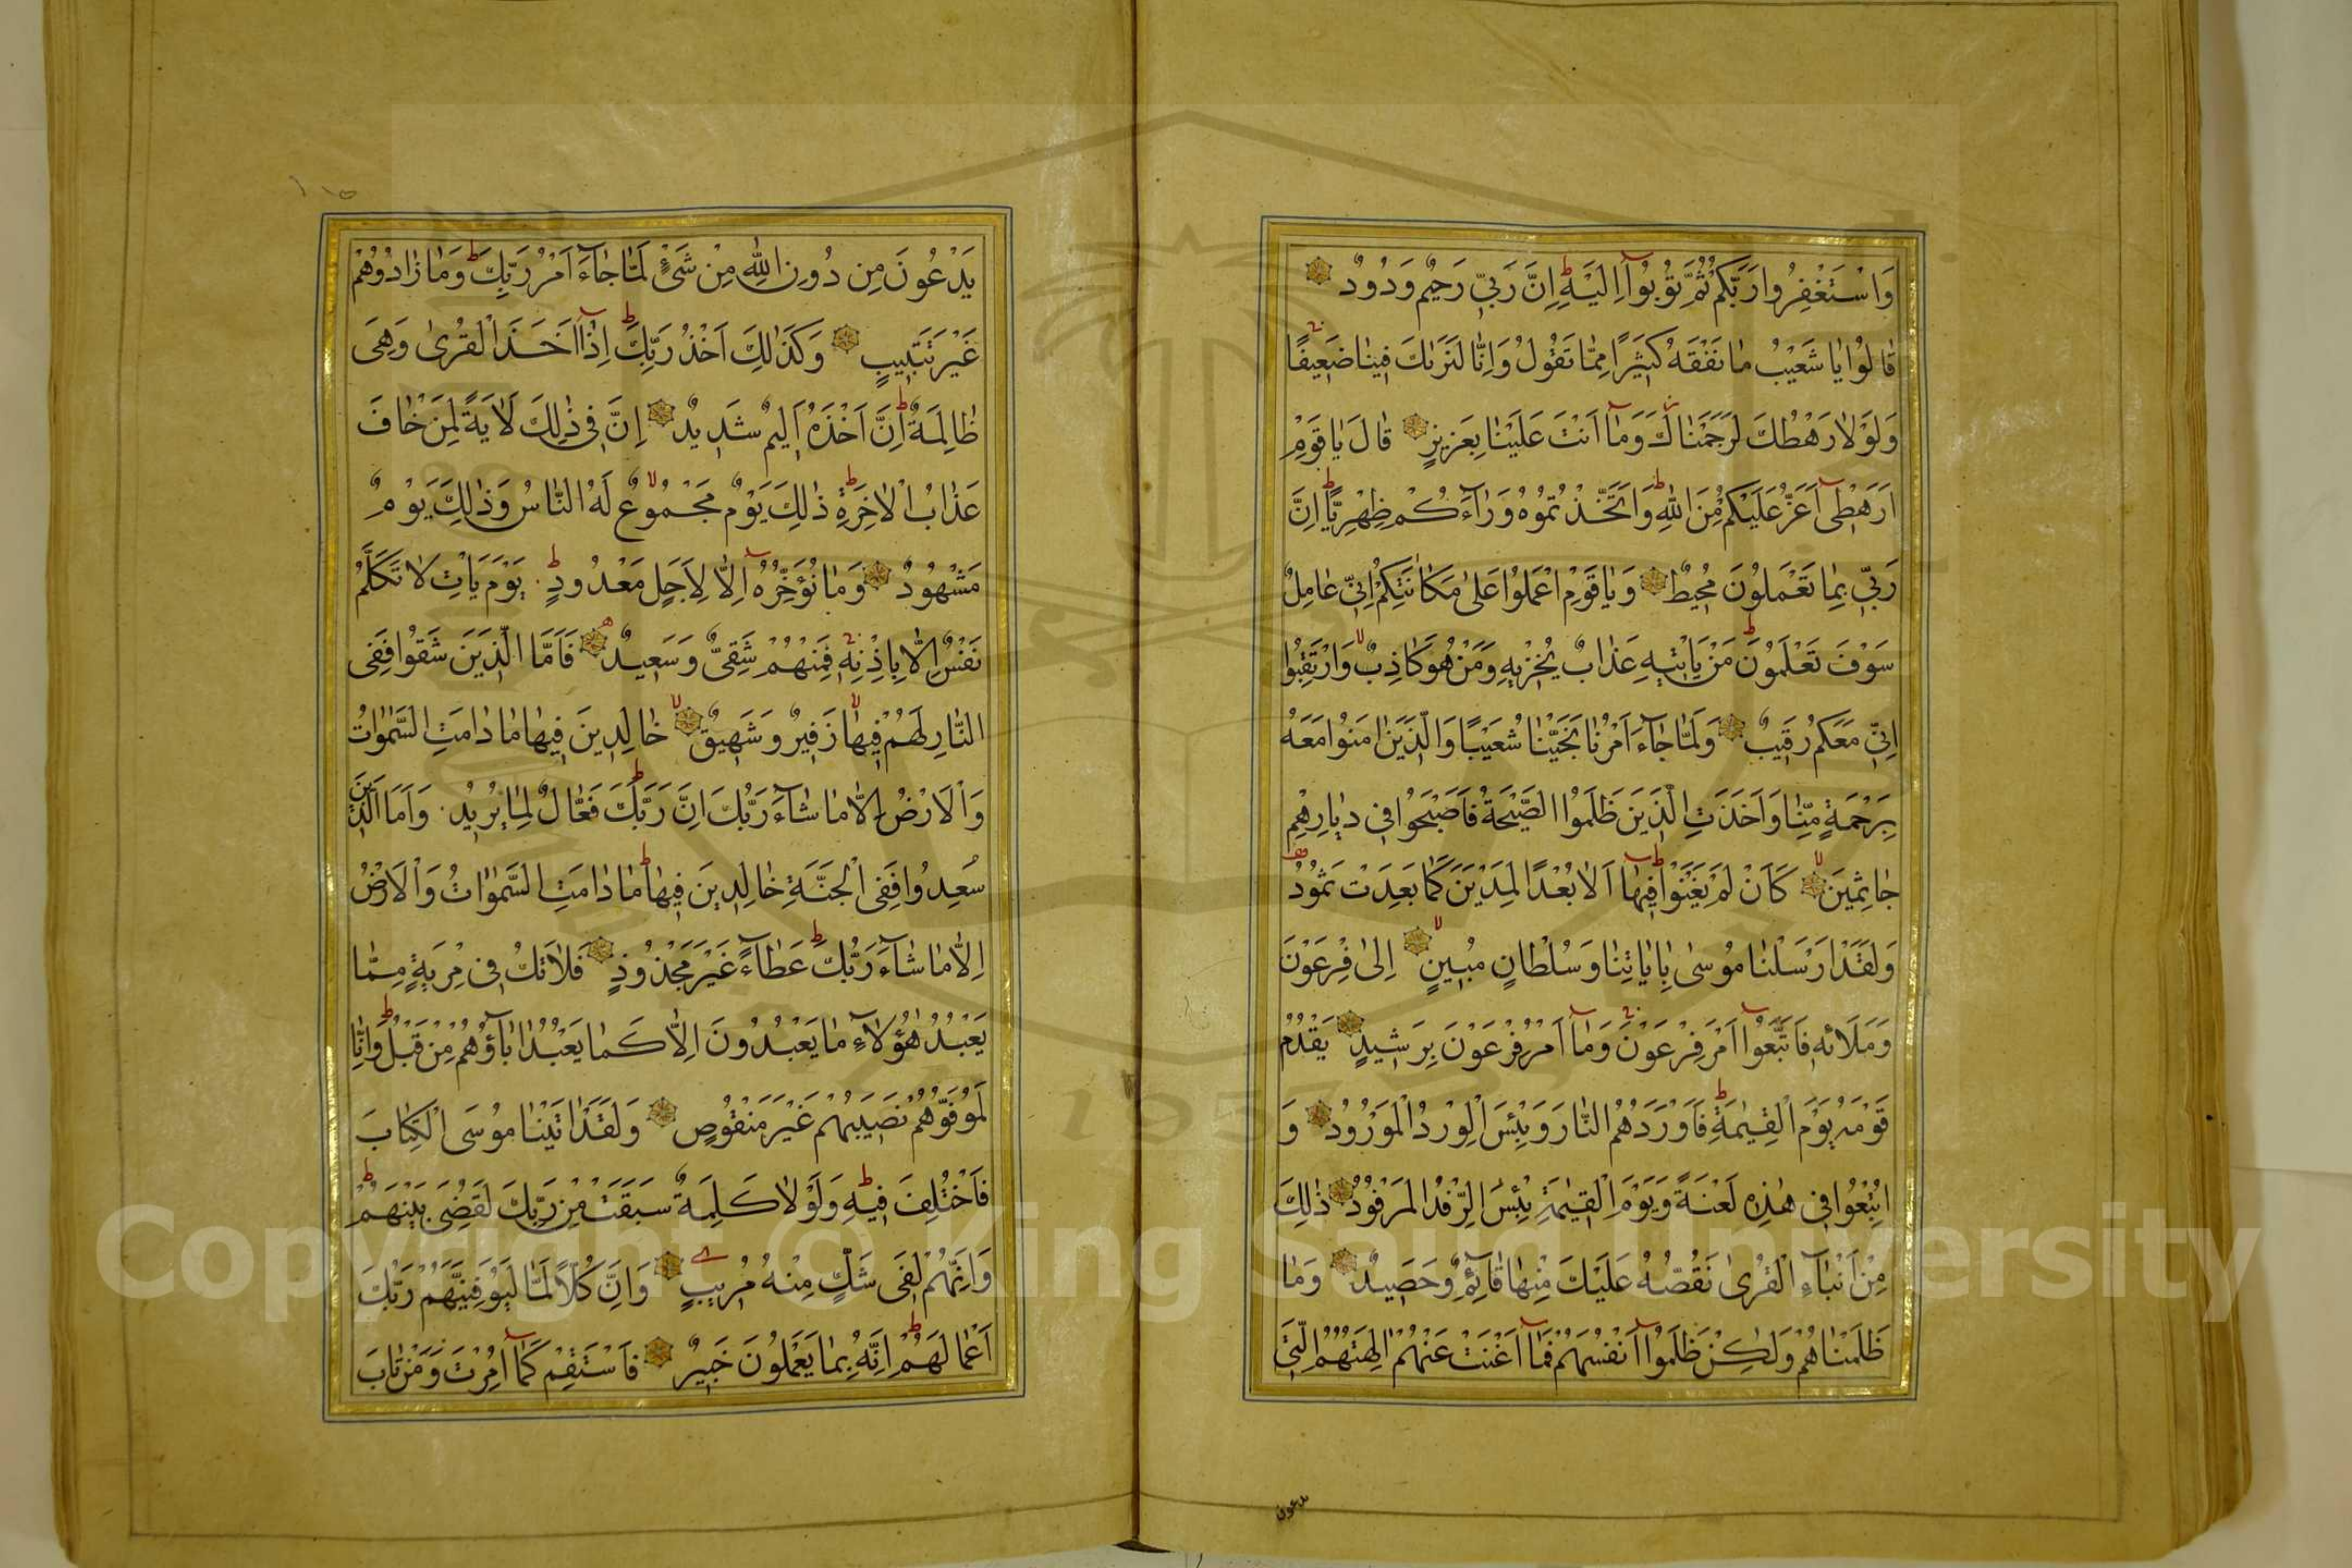 وَاسْتَغْفِرُوا رَبَّكُمْ ثُمَّ تُوبُوآ اِلَيْهِ ط اِنَّ رَبِّي رَحِيمٌ وَدُودٌ
قَالُوا يَا شُعَيْبُ مَا نَفْقَهُ كَثِيرًا مِمَّا تَقُولُ وَاِنَّا لَنَرَيٰكَ فِينَا ضَعِيفًا
وَلَوْلَا رَهْطُكَ لَرَجَمْنَاكَ وَمَآ اَنْتَ عَلَيْنَا بِعَزِيزٍ قَالَ يَا قَوْمِ
اَرَهْطِىٓ اَعَزُّ عَلَيْكُمْ مِنَ اللّٰهِ ط وَاتَّخَذْتُمُوهُ وَرَآءَكُمْ ظِهْرِيًّا ط اِنَّ
رَبِّي بِمَا تَعْمَلُونَ مُحِيطٌ وَيَا قَوْمِ اعْمَلُوا عَلَى مَكَانَتِكُمْ اِنِّي عَامِلٌ
سَوْفَ تَعْلَمُونَ ط مَنْ يَاْتِيهِ عَذَابٌ يُخْزِيهِ وَمَنْ هُوَ كَاذِبٌ وَارْتَقِبُوا
اِنِّي مَعَكُمْ رَقِيبٌ وَلَمَّا جَآءَ اَمْرُنَا نَجَّيْنَا شُعَيْبًا وَالَّذِينَ اٰمَنُوا مَعَهُ
بِرَحْمَةٍ مِنَّا وَاَخَذَتِ الَّذِينَ ظَلَمُوا الصَّيْحَةُ فَاَصْبَحُوا فِي دِيَارِهِمْ
جَاثِمِينَ كَاَنْ لَمْ يَغْنَوْا فِيهَآ ط اَلَا بُعْدًا لِمَدْيَنَ كَمَا بَعِدَتْ ثَمُودُ
وَلَقَدْ اَرْسَلْنَا مُوسَى بِاٰيَاتِنَا وَسُلْطَانٍ مُبِينٍ اِلَى فِرْعَوْنَ
وَمَلَائِهِ فَاتَّبَعُوآ اَمْرَ فِرْعَوْنَ وَمَآ اَمْرُ فِرْعَوْنَ بِرَشِيدٍ يَقْدُمُ
قَوْمَهُ يَوْمَ الْقِيٰمَةِ ط فَاَوْرَدَهُمُ النَّارَ وَبِئْسَ الْوِرْدُ الْمَوْرُودُ وَ
اُتْبِعُوا فِي هٰذِهِ لَعْنَةً وَيَوْمَ الْقِيٰمَةِ بِئْسَ الرِّفْدُ الْمَرْفُودُ ذٰلِكَ
مِنْ اَنْبَآءِ الْقُرٰى نَقُصُّهُ عَلَيْكَ مِنْهَا قَآئِمٌ وَحَصِيدٌ وَمَا
ظَلَمْنَاهُمْ وَلٰكِنْ ظَلَمُوآ اَنْفُسَهُمْ فَمَآ اَغْنَتْ عَنْهُمْ اٰلِهَتُهُمُ الَّتِي
يدعون
يَدْعُونَ مِنْ دُونِ اللّٰهِ مِنْ شَيْءٍ لَمَّا جَآءَ اَمْرُ رَبِّكَ ط وَمَا زَادُوهُمْ
غَيْرَ تَتْبِيبٍ وَكَذٰلِكَ اَخْذُ رَبِّكَ ط اِذَآ اَخَذَ الْقُرٰى وَهِىَ
ظَالِمَةٌ ط اِنَّ اَخْذَهُ اَلِيمٌ شَدِيدٌ اِنَّ فِي ذٰلِكَ لَاٰيَةً لِمَنْ خَافَ
عَذَابَ الْاٰخِرَةِ ط ذٰلِكَ يَوْمٌ مَجْمُوعٌ لَهُ النَّاسُ وَذٰلِكَ يَوْمٌ
مَشْهُودٌ وَمَا نُؤَخِّرُهُٓ اِلَّا لِاَجَلٍ مَعْدُودٍ ط يَوْمَ يَاْتِ لَا تَكَلَّمُ
نَفْسٌ اِلَّا بِاِذْنِهِ فَمِنْهُمْ شَقِىٌّ وَسَعِيدٌ فَاَمَّا الَّذِينَ شَقُوا فَفِى
النَّارِ لَهُمْ فِيهَا زَفِيرٌ وَشَهِيقٌ خَالِدِينَ فِيهَا مَا دَامَتِ السَّمٰوَاتُ
وَالْاَرْضُ اِلَّا مَا شَآءَ رَبُّكَ ط اِنَّ رَبَّكَ فَعَّالٌ لِمَا يُرِيدُ وَاَمَّا الَّذِينَ
سُعِدُوا فَفِى الْجَنَّةِ خَالِدِينَ فِيهَا مَا دَامَتِ السَّمٰوَاتُ وَالْاَرْضُ
اِلَّا مَا شَآءَ رَبُّكَ ط عَطَآءً غَيْرَ مَجْذُوذٍ فَلَا تَكُ فِي مِرْيَةٍ مِمَّا
يَعْبُدُ هٰٓؤُلَآءِ مَا يَعْبُدُونَ اِلَّا كَمَا يَعْبُدُ اٰبَآؤُهُمْ مِنْ قَبْلُ ط وَاِنَّا
لَمُوَفُّوهُمْ نَصِيبَهُمْ غَيْرَ مَنْقُوصٍ وَلَقَدْ اٰتَيْنَا مُوسَى الْكِتَابَ
فَاخْتُلِفَ فِيهِ ط وَلَوْلَا كَلِمَةٌ سَبَقَتْ مِنْ رَبِّكَ لَقُضِىَ بَيْنَهُمْ ط
وَاِنَّهُمْ لَفِى شَكٍّ مِنْهُ مُرِيبٍ وَاِنَّ كُلًّا لَمَّا لَيُوَفِّيَنَّهُمْ رَبُّكَ
اَعْمَالَهُمْ ط اِنَّهُ بِمَا يَعْمَلُونَ خَبِيرٌ فَاسْتَقِمْ كَمَآ اُمِرْتَ وَمَنْ تَابَ
Copyright © King Saud University